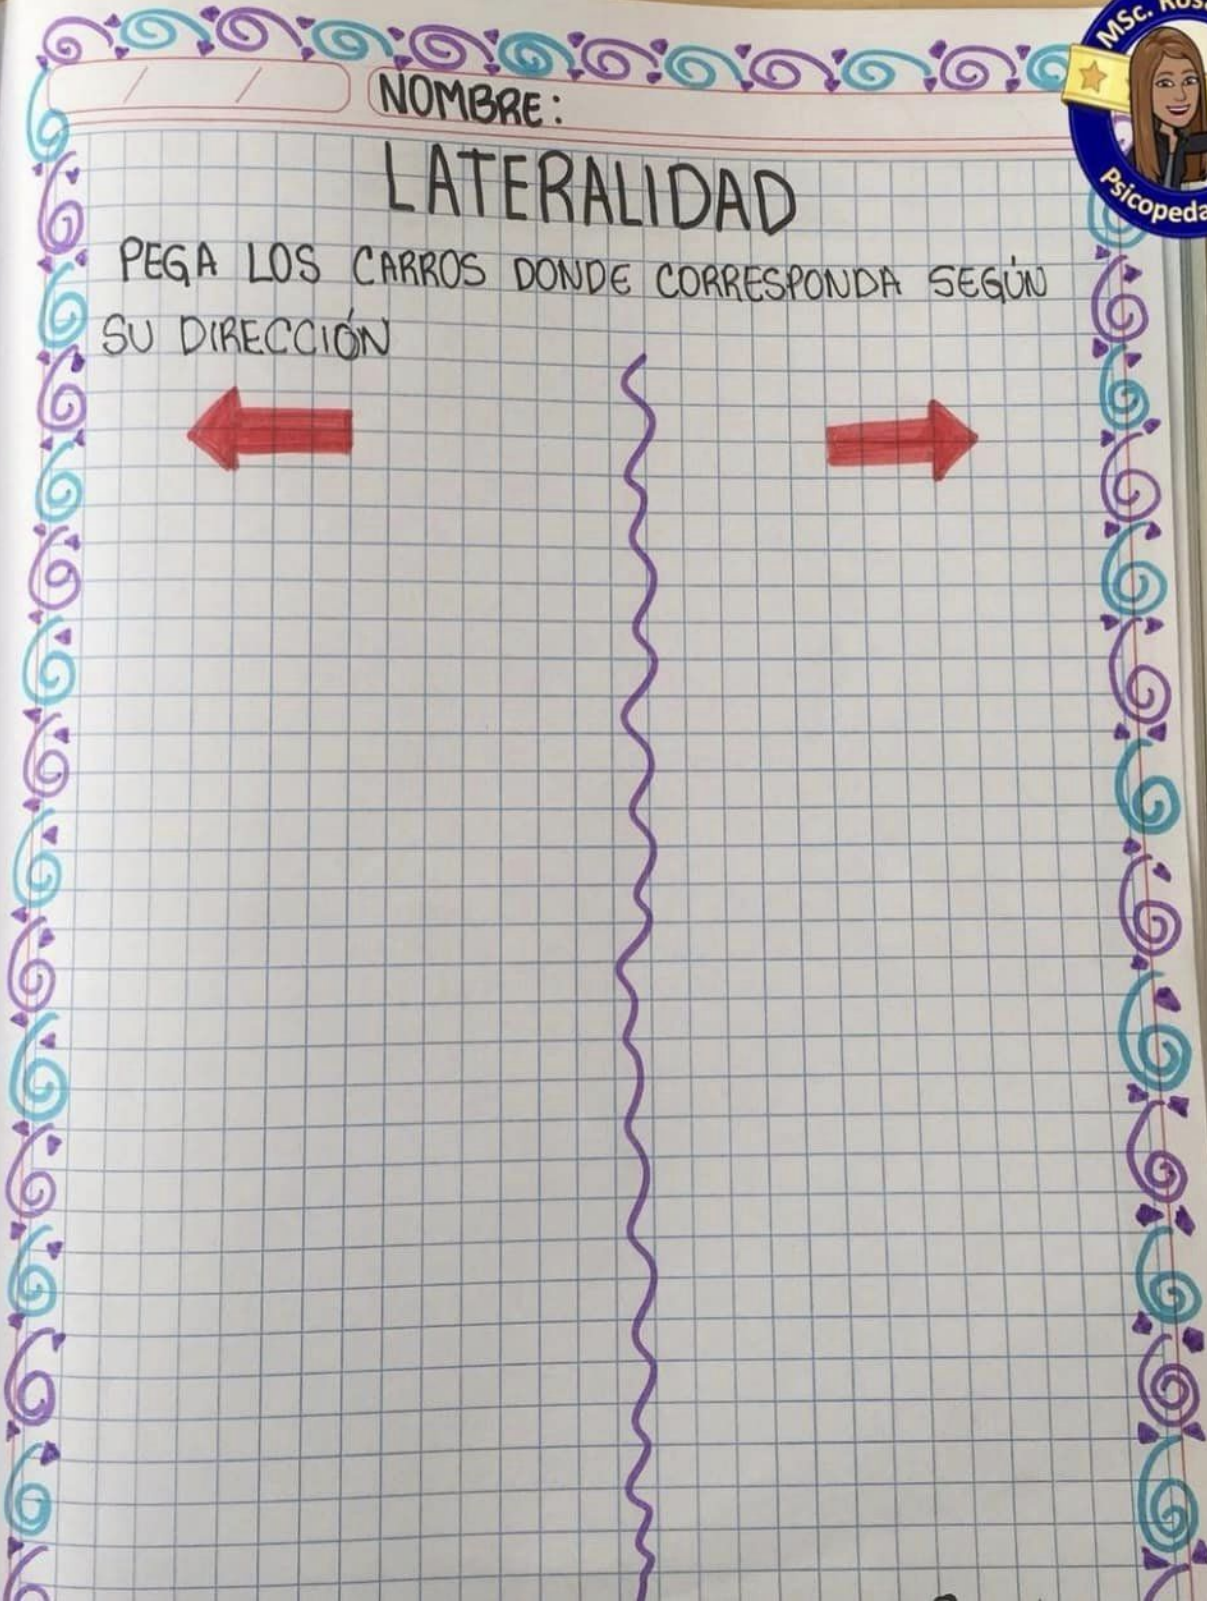 MSc.
NOMBRE:
LATERALIDAD
PEGA LOS CARROS DONDE CORRESPONDA SEGÚN
SU DIRECCIÓN